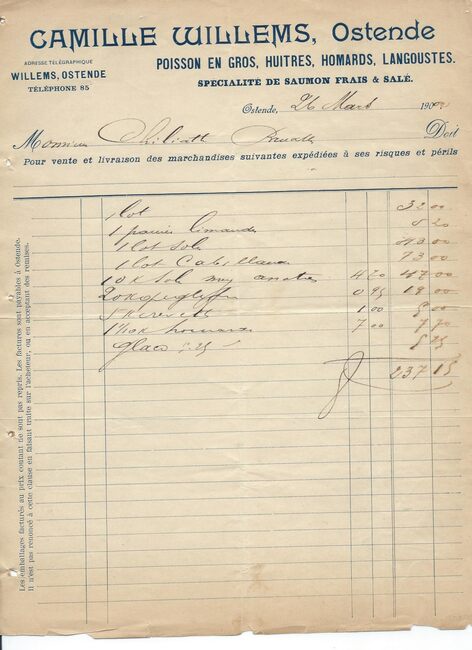 CAMILLE WILLEMS, Ostende
ADRESSE TÉLÉGRAPHIQUE
WILLEMS, OSTENDE
TÉLÉPHONE 85
POISSON EN GROS, HUITRES, HOMARDS, LANGOUSTES.
SPÉCIALITÉ DE SAUMON FRAIS & SALÉ.
Ostende, 26 Mars 190
Monsieur Doit
Pour vente et livraison des marchandises suivantes expédiées à ses risques et périls
1 lot 32 00
1 panier limandes 8 20
1 lot Sole 00
1 lot Cabillaud 73 00
10 K Sole 4 20 00
20 K 0 95 19 00
5 K 1 00 5 00
7 00 7 70
glace 5 25
237 15
Les emballages facturés au prix coutant ne sont pas repris. Les factures sont payables à Ostende.
Il n'est pas renoncé à cette clause en faisant traite sur l'acheteur, ou en acceptant des remises.